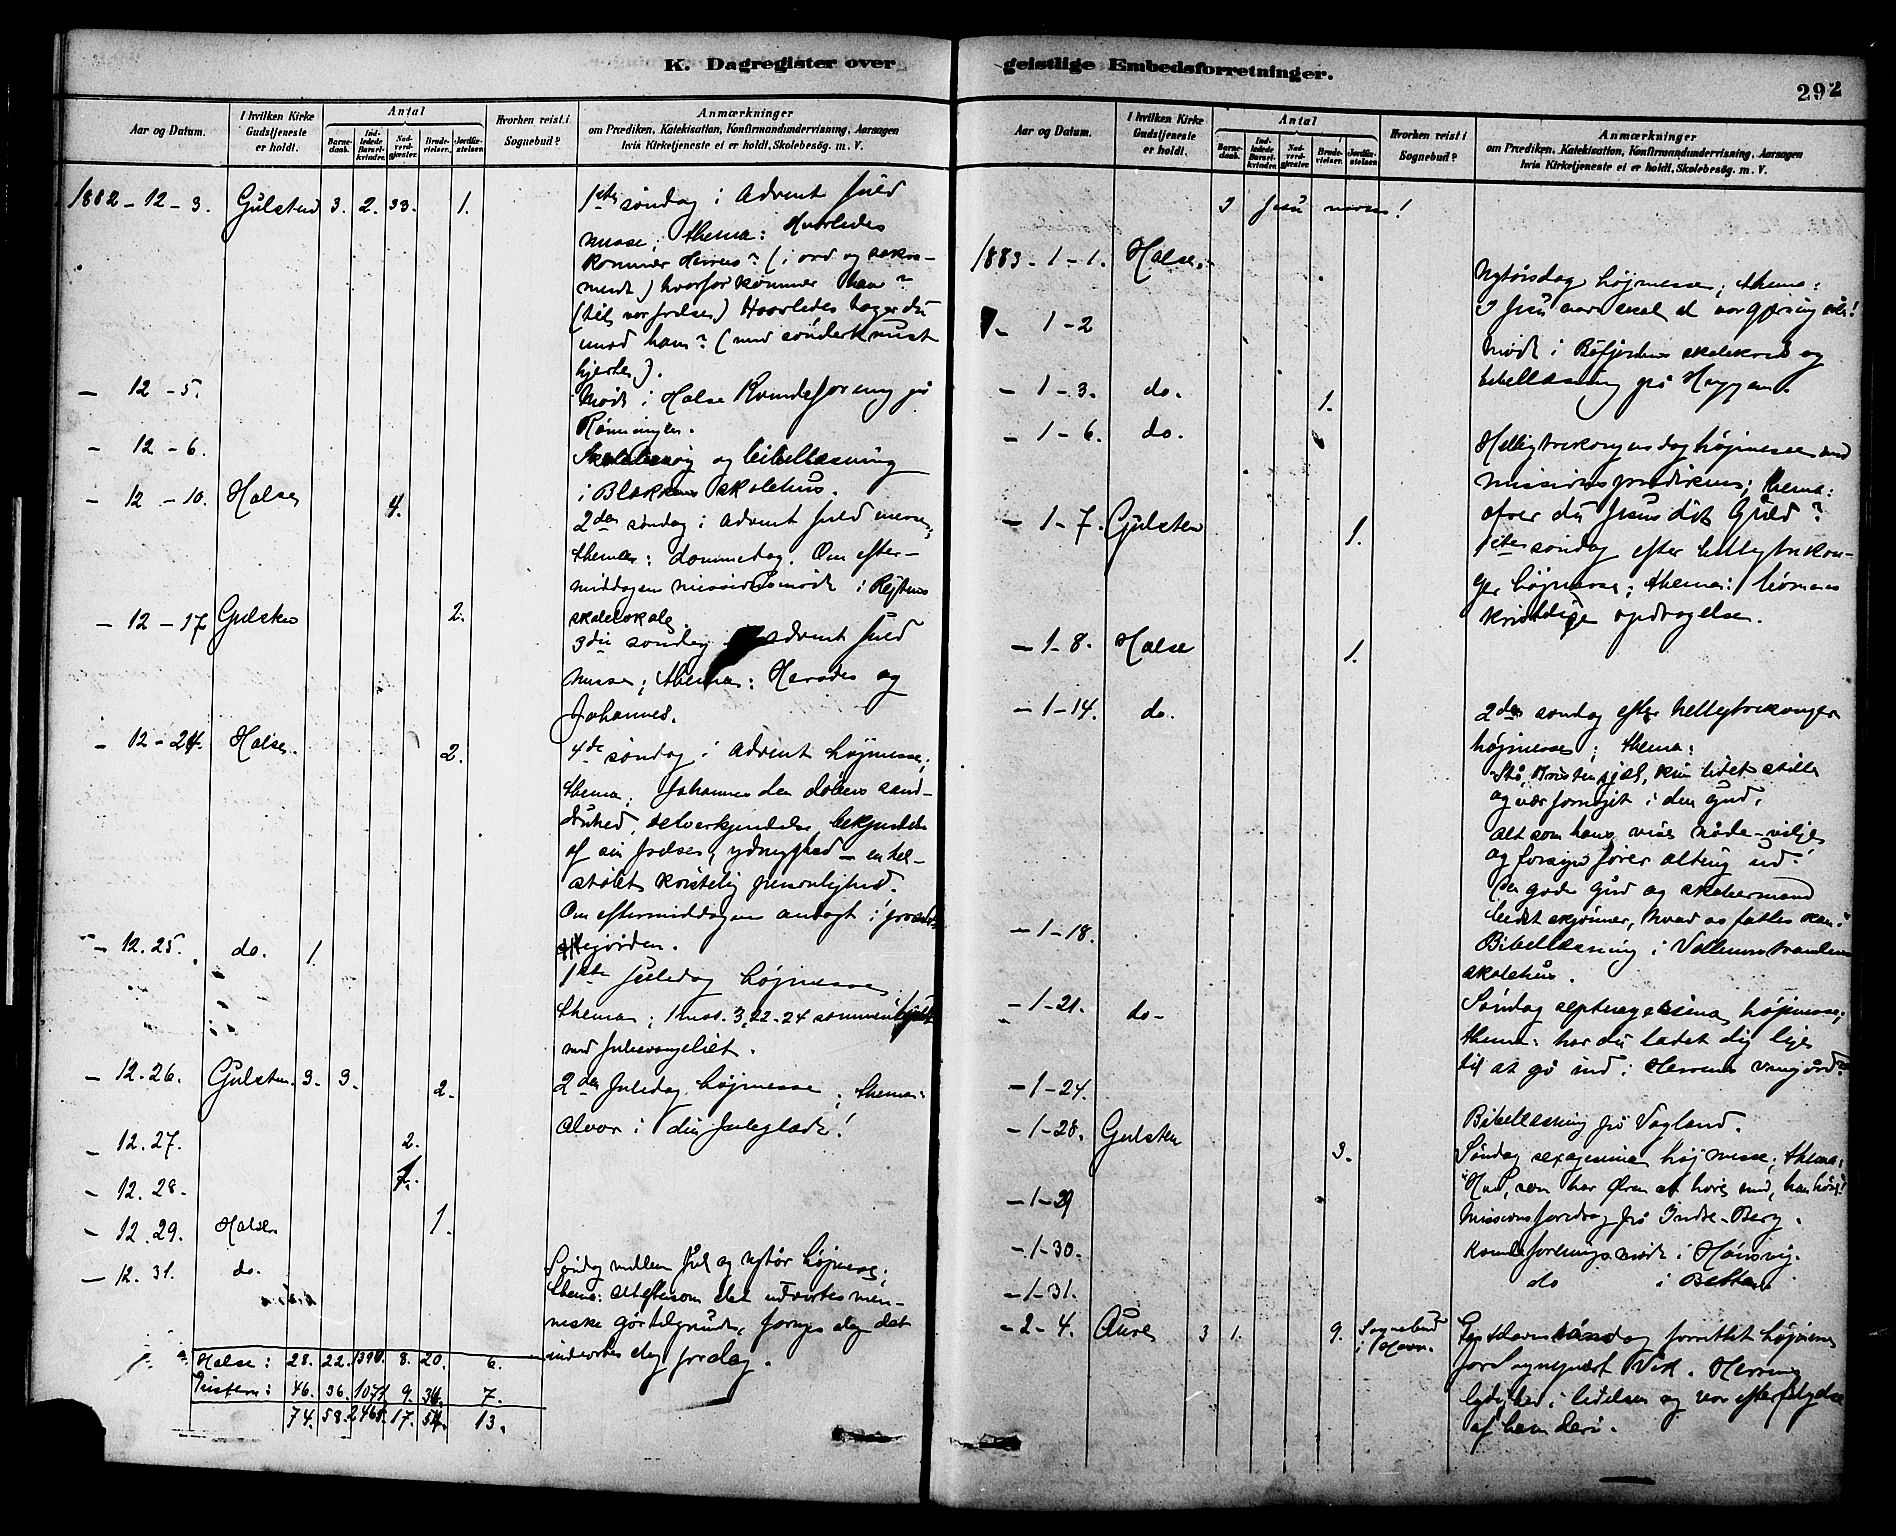 K. Dagregister over
Aar og Datum.
I hvilken Kirke Gudstjeneste er holdt.
Antal
Barnedaab.
Indledede Barselkvinder.
Nadverdgjæster.
Brudevielser.
Jordfæstelser.
Hvorhen reist i Sognebud?
Anmærkninger
om Prædiken, Katekisation, Konfirmandundervisning, Aarsagen
hvis Kirketjeneste ei er holdt, Skolebesøg. m. V.
1882 - 12 - 3. Gulsten 3. 2. 33. 1. 1ste søndag i Advent fuld
messe; thema: Hvorledes
kommer Herren? (i ord og sakra-
ment) hvorfor kommer han?
(til vor frelse) Hvorledes tager du
imod ham? (med sønderknust
hjerte).
- 12 - 5. Møde i Halse Kvindeforening på
Rønningen.
- 12 - 6. Skolebesøg og bibellæsning
i skolehus.
- 12 - 10. Halse 4. 2den søndag i Advent fuld messe;
thema: dommedag. Om efter-
middagen missionsmøde i
skolelokale.
- 12 - 17 Gulsten 2. 3die søndag i Advent fuld
messe; thema: Herodes og
Johannes.
- 12 - 24. Halse. 2. 4de søndag i Advent højmesse;
thema: Johannes den døbers sand-
druhed, selverkjendelse, bekjendelse
af sin frelser, ydmyghed - en hel-
støbt kristelig personlighed.
Om eftermiddagen

- 12.25. do. 1. 1ste juledag højmesse
thema; 1 mos. 3,22-24
med juleevangeliet.
- 12.26. Gulsten. 3. 3. 2. 2den juledag højmesse; thema:
Alvor i din juleglæde!
- 12.27. 2.
- 12.28. 1.
- 12.29. Halse 1.
- 12.31. do. Søndag mellem jul og nytår højmesse;
thema: alt eftersom det udvortes men-
neske går tilgrunde, fornyes dog det
indvortes dag for dag.
Halse: 28. 22. 8. 20. 6.
46. 36. 1071 9. 34. 7.
74. 58. 17. 54. 13.
geistlige Embedsforretninger.
292
Aar og Datum.
I hvilken Kirke Gudstjeneste er holdt.
Antal
Barnedaab.
Indledede Barselkvinder.
Nadverdgjæster.
Brudevielser.
Jordfæstelser.
Hvorhen reist i Sognebud?
Anmærkninger
om Prædiken, Katekisation, Konfirmandundervisning, Aarsagen
hvis Kirketjeneste ei er holdt, Skolebesøg. m. V.
I Jesu navn!
1883 - 1 - 1. Halse. Nytårsdag højmesse; thema:
I Jesu navn skal al vor gjerning ske!
- 1 - 2 Møde i Bøfjordens skolekreds og
bibellæsning på
- 1 - 3. do. 1.
- 1 - 6. do. Helligtrekongersdag højmesse med
missionsprædiken; thema:
ofrer du Jesus dit guld?
- 1 - 7. Gulsten 1. 1ste søndag efter helligtrekon-
ger højmesse; thema: børnenes
kristelige opdragelse.
- 1 - 8. Halse 1.
- 1 - 14. do. 2den søndag efter helligtrekonger
højmesse; thema:
Stå, kristen sjæl, kun lidet stille
og vær fornøjet i din gud,
alt som hans vises nåde-vilje
og forsyn fører alting ud!
den gode gud og skabermand
bedst skjønner, hvad os fattes kan!
- 1 - 18. Bibellæsning i
skolehus.
- 1 - 21. do - Søndag septuagesima højmesse;
thema: har du ladet dig leje
til at gå ind i Herrens vingård?
- 1 - 24. Bibellæsning på Vagland.
- 1 - 28. Gulsten 3. Søndag sexagesima højmesse; thema:
"Hvo, som har øren at høre med, han høre!"
- 1 - 29 Missionsforedrag på Indre-Berg.
- 1 - 30. Kvindeforeningsmøde i Hønsvig.
- 1 - 31. do i Betten.
- 2 - 4. Aure 3 1. 9. Sognebud i Havn. Fastelavnssøndag forrettet højmesse
for sognepræst Wek. Herrens
lydighed i lidelsen og vor efterfølgelse
af ham deri.